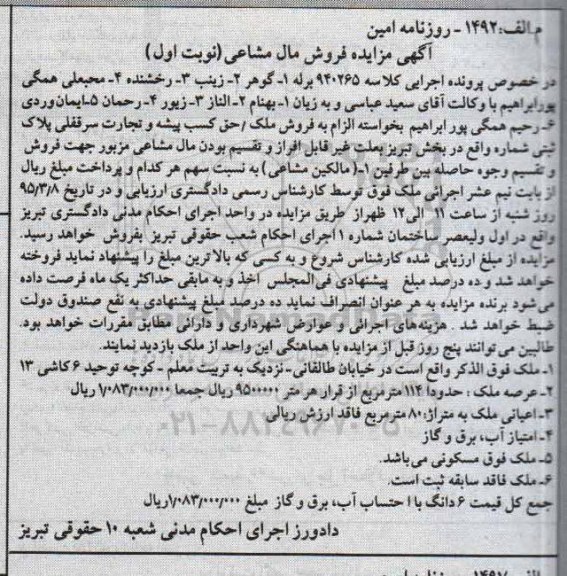 م الف:۱۴۹۲ - روزنامه امین
آگهی مزایده فروش مال مشاعی (نوبت اول)
در خصوص پرونده اجرایی کلاسه ۹۴۰۲۶۵ برله ۱- گوهر ۲- زینب ۳- رخشنده ۴- محبعلی همگی
پورابراهیم با وکالت آقای سعید عباسی و به زیان ۱- بهنام ۲- الناز ۳- زیور ۴- رحمان ۵- ایمان وردی
۶- رحیم همگی پور ابراهیم بخواسته الزام به فروش ملک /حق کسب پیشه و تجارت سرقفلی پلاک
ثبتی شماره واقع در بخش تبریز بعلت غیر قابل افراز و تقسیم بودن مال مشاعی مزبور جهت فروش
و تقسیم وجوه حاصله بین طرفین ۱- (مالکین مشاعی) به نسبت سهم هر کدام و پرداخت مبلغ ریال
از بابت نیم عشر اجرائی ملک فوق توسط کارشناس رسمی دادگستری ارزیابی و در تاریخ ۹۵/۳/۸
روز شنبه از ساعت ۱۱ الی ۱۲ ظهراز طریق مزایده در واحد اجرای احکام مدنی دادگستری تبریز
واقع در اول ولیعصر ساختمان شماره ۱ اجرای احکام شعب حقوقی تبریز بفروش خواهد رسید.
مزایده از مبلغ ارزیابی شده کارشناس شروع و به کسی که بالاترین مبلغ را پیشنهاد نماید فروخته
خواهد شد و ده درصد مبلغ پیشنهادی فی المجلس اخذ و به مابقی حداکثر یک ماه فرصت داده
می شود برنده مزایده به هر عنوان انصراف نماید ده درصد مبلغ پیشنهادی به نفع صندوق دولت
ضبط خواهد شد . هزینه های اجرائی و عوارض شهرداری و دارائی مطابق مقررات خواهد بود.
طالبین می توانند پنج روز قبل از مزایده با هماهنگی این واحد از ملک بازدید نمایند.
۱- ملک فوق الذکر واقع است در خیابان طالقانی- نزدیک به تربیت معلم - کوچه توحید ۶ کاشی ۱۳
۲- عرصه ملک : حدودا ۱۱۴ متر مربع از قرار هر متر ۹۵۰۰۰۰۰ ریال جمعا ۱/۰۸۳/۰۰۰/۰۰۰ ریال
۳- اعیانی ملک به متراژ:۸۰ متر مربع فاقد ارزش ریالی
۴- امتیاز آب، برق و گاز
۵- ملک فوق مسکونی می باشد.
۶- ملک فاقد سابقه ثبت است.
جمع کل قیمت ۶ دانگ با احتساب آب، برق و گاز مبلغ ۱/۰۸۳/۰۰۰/۰۰۰ریال
دادورز اجرای احکام مدنی شعبه ۱۰ حقوقی تبریز